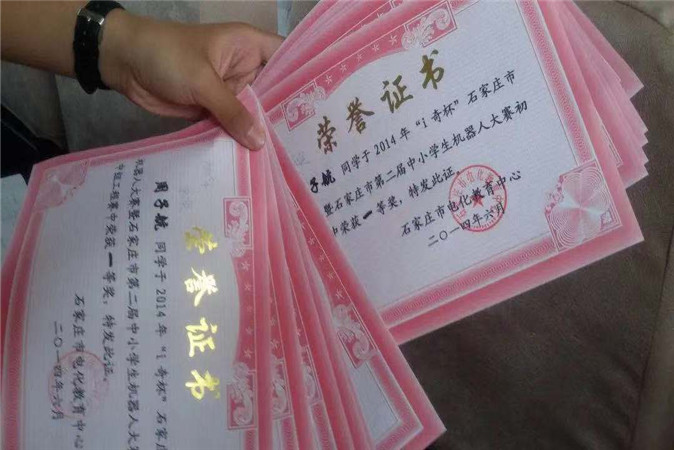 荣誉证书
子航 同学于 2014 年 “i 奇杯” 石家庄市
暨石家庄市第二届中小学生机器人大赛初
中荣获一等奖，特发此证。
石家庄市电化教育中心
二〇一四年六月
荣誉证书
周子航 同学于 2014 年 “i 奇杯” 石家庄
机器人大赛暨石家庄市第二届中小学生机器人大赛
中组工程赛中荣获一等奖，特发此证。
石家庄市电化教育中心
二〇一四年六月